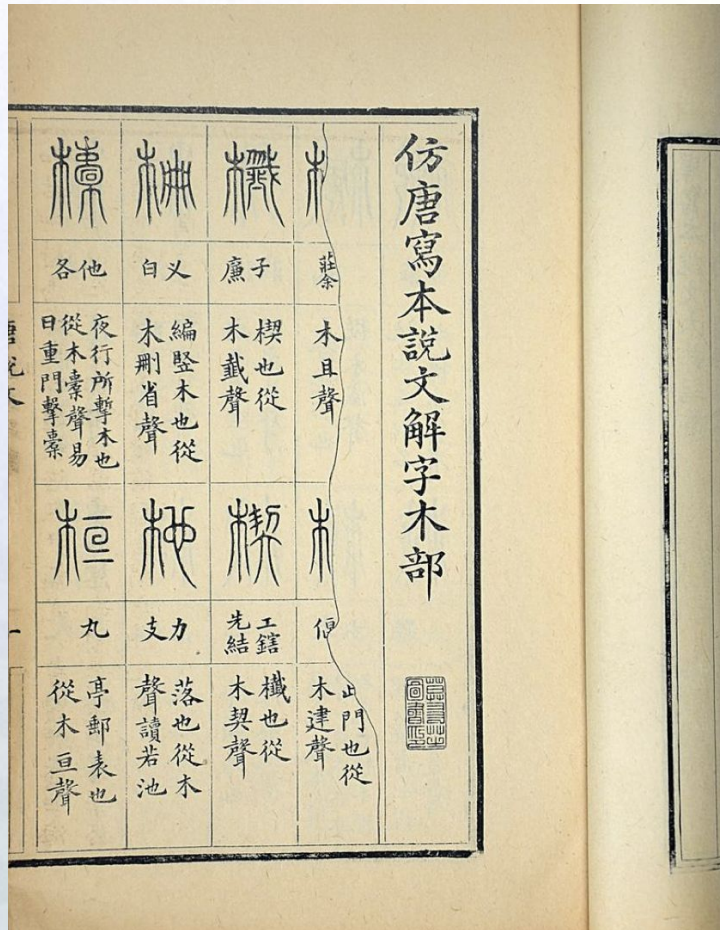 仿唐寫本說文解字木部
莒
莊余
木且聲
偃
歫門也從
木建聲
櫼
子廉
楔也從
木韱聲
楔
工鎋
先結
櫼也從
木契聲
柵
义白
編竪木也從
木刪省聲
杝
力支
落也從木
聲讀若池
㯓
他各
夜行所擊木也
從木橐聲易
曰重門擊橐
桓
丸
亭郵表也
從木亘聲
唐說文
一